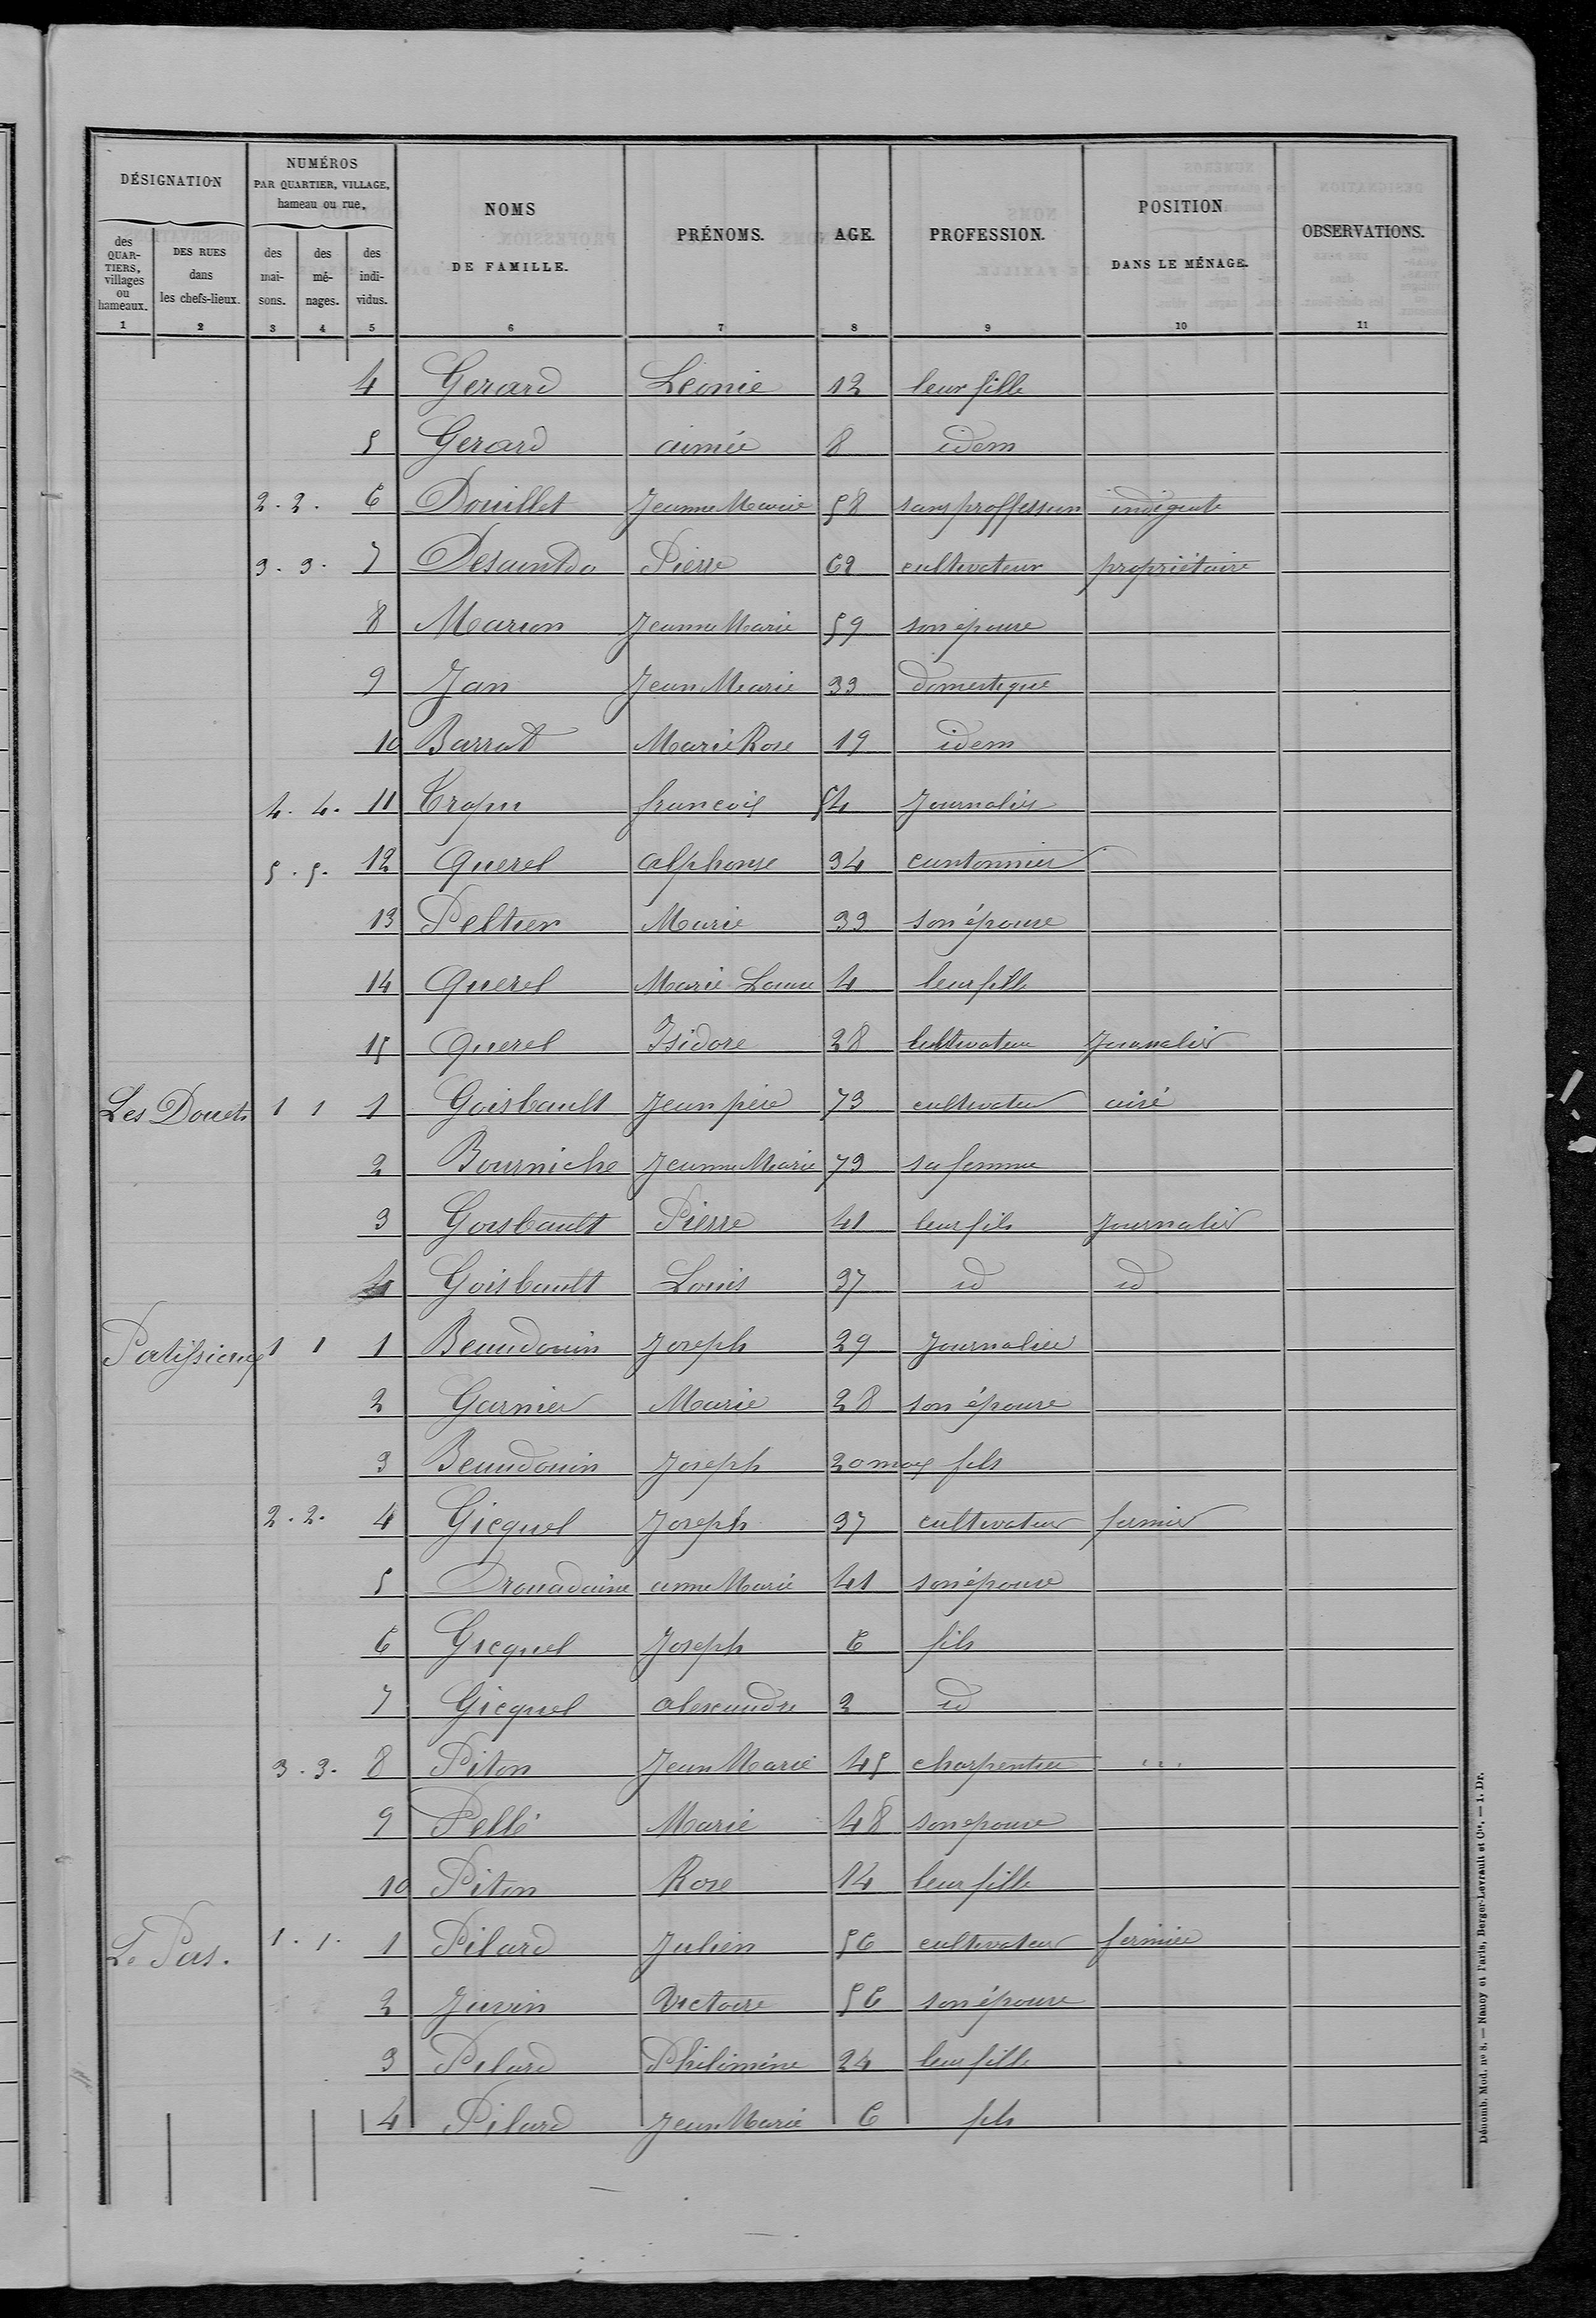 DÉSIGNATION NUMÉROS PAR QUARTIER, VILLAGE, hameau ou rue. NOMS DE FAMILLE. PRÉNOMS. AGE. PROFESSION. POSITION DANS LE MÉNAGE. OBSERVATIONS.
des QUARTIERS, villages ou hameaux. DES RUES dans les chefs-lieux. des maisons. des ménages. des individus.
1 2 3 4 5 6 7 8 9 10 11
4 Gerard Leonie 12 leur fille
5 Gerard aimée 8 idem
2. 2. 6 Douillet Jeanne Marie 58 sans proffession indigente
3. 3. 7 Pierre 62 cultivateur propriétaire
8 Marion Jeanne Marie 59 son épouse
9 Jan Jean Marie 33 domestique
10 Barrat Marie Rose 19 idem
4. 4. 11 francois 54 Journalier
5. 5. 12 Querel alphonse 34 cantonnier
13 Peltier Marie 33 son épouse
14 Querel Marie 4 leur fille
15 Querel Isidore 28 Cultivateur Journalier
Les Douets 1 1 1 Goisbault Jean père 73 cultivateur
2 Bourniche Jeanne Marie 73 sa femme
3 Goisbault Pierre 41 leur fils Journalier
4 Goisbault Louis 37 id id
1 1 1 Beaudouin Joseph 29 Journalier
2 Garnier Marie 28 son épouse
3 Beaudouin Joseph 20 moy fils
2. 2. 4 Gicquel Joseph 37 cultivateur fermier
5 Drouadaine anne Marie 41 son épouse
6 Gicquel Joseph 6 fils
7 Gicquel alexandre 2 id
3. 3. 8 Piton Jean Marie 45 charpentier ...
9 Pellé Marie 48 son epouse
10 Piton Rose 14 leur fille
Le Pas. 1. 1. 1 Pilard Julien 56 cultivateur fermier
2 Juvin Victoire 56 son épouse
3 Pilard Philimène 24 leur fille
4 Pilard Jean Marie 6 fils
Dénomb. Mod. nº 8. — Nancy et Paris, Berger-Levrault et Cie. — I. Dr.